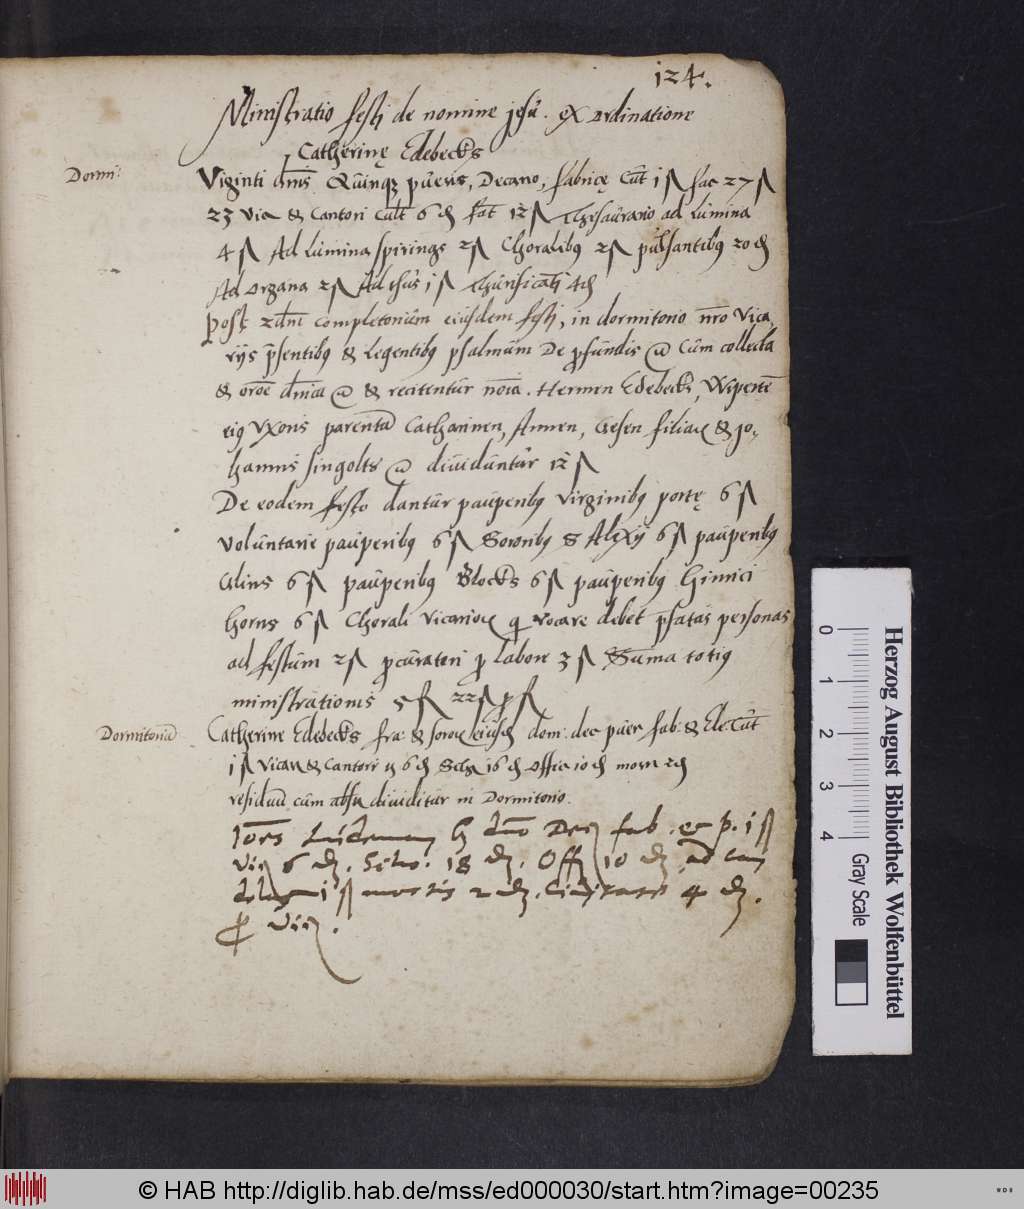 124.
Ministratio festi de nomine jesu. ex ordinatione
Catherinę Edebecks
Dormi:
Viginti dnis. Quinqz pueris, Decano, fabricę Cuit 1 ß fac 27 ß
23 vic & Cantori Cuilt 6 d fat 12 ß Thesaurario ad Lumina
4 ß Ad Lumina spirings 2 ß Choralibꝯ 2 ß pulsantibꝯ 20 d
Ad organa 2 ß Ad thus 1 ß Thurificati 4 d
Post 2dm completorium eiusdem festi, in dormitorio nro vica
rijs psentibꝯ & Legentibꝯ psalmum De pfundis Cum collecta
& oroe dnica & recitentur noia. Hermen Edebecks, Wipertē
eiꝯ vxoris parentū Catharinen, Annen, Gesen filiaꝝ & jo,
hannis singolts dividuntur 12 ß
De eodem festo dantur pauperibꝯ virginibꝯ portę 6 ß
voluntarie pauperibꝯ 6 ß Sororibꝯ S Alexij 6 ß pauperibꝯ
6 ß pauperibꝯ Blocks 6 ß pauperibꝯ Hinrici
horns 6 ß Chorali vicarioꝝ q vocare debet pfatas personas
ad festum 2 ß pcuratori p labore 3 ß Summa totiꝯ
ministrationis 5 fl 22 ß p fl
Dormitoriū
Catherine Edebecks fra: & soroꝝ eiusd dom: dec puer fab: & Ele: Cuit
1 ß vican & Cantori 6 d Scho 16 d Offic 10 d morn 2 d
residuū cum absn dividitur in Dormitorio.
Johes Lud dno Dec fab. ec p. 1 ß
Vic 6 d. Scho. 18 d. Off 10 d ad
1 ß mortis 2 d. Civitati 4 d.
p Vic.
Herzog August Bibliothek Wolfenbüttel
0 1 2 3 4 Gray Scale
© HAB http://diglib.hab.de/mss/ed000030/start.htm?image=00235